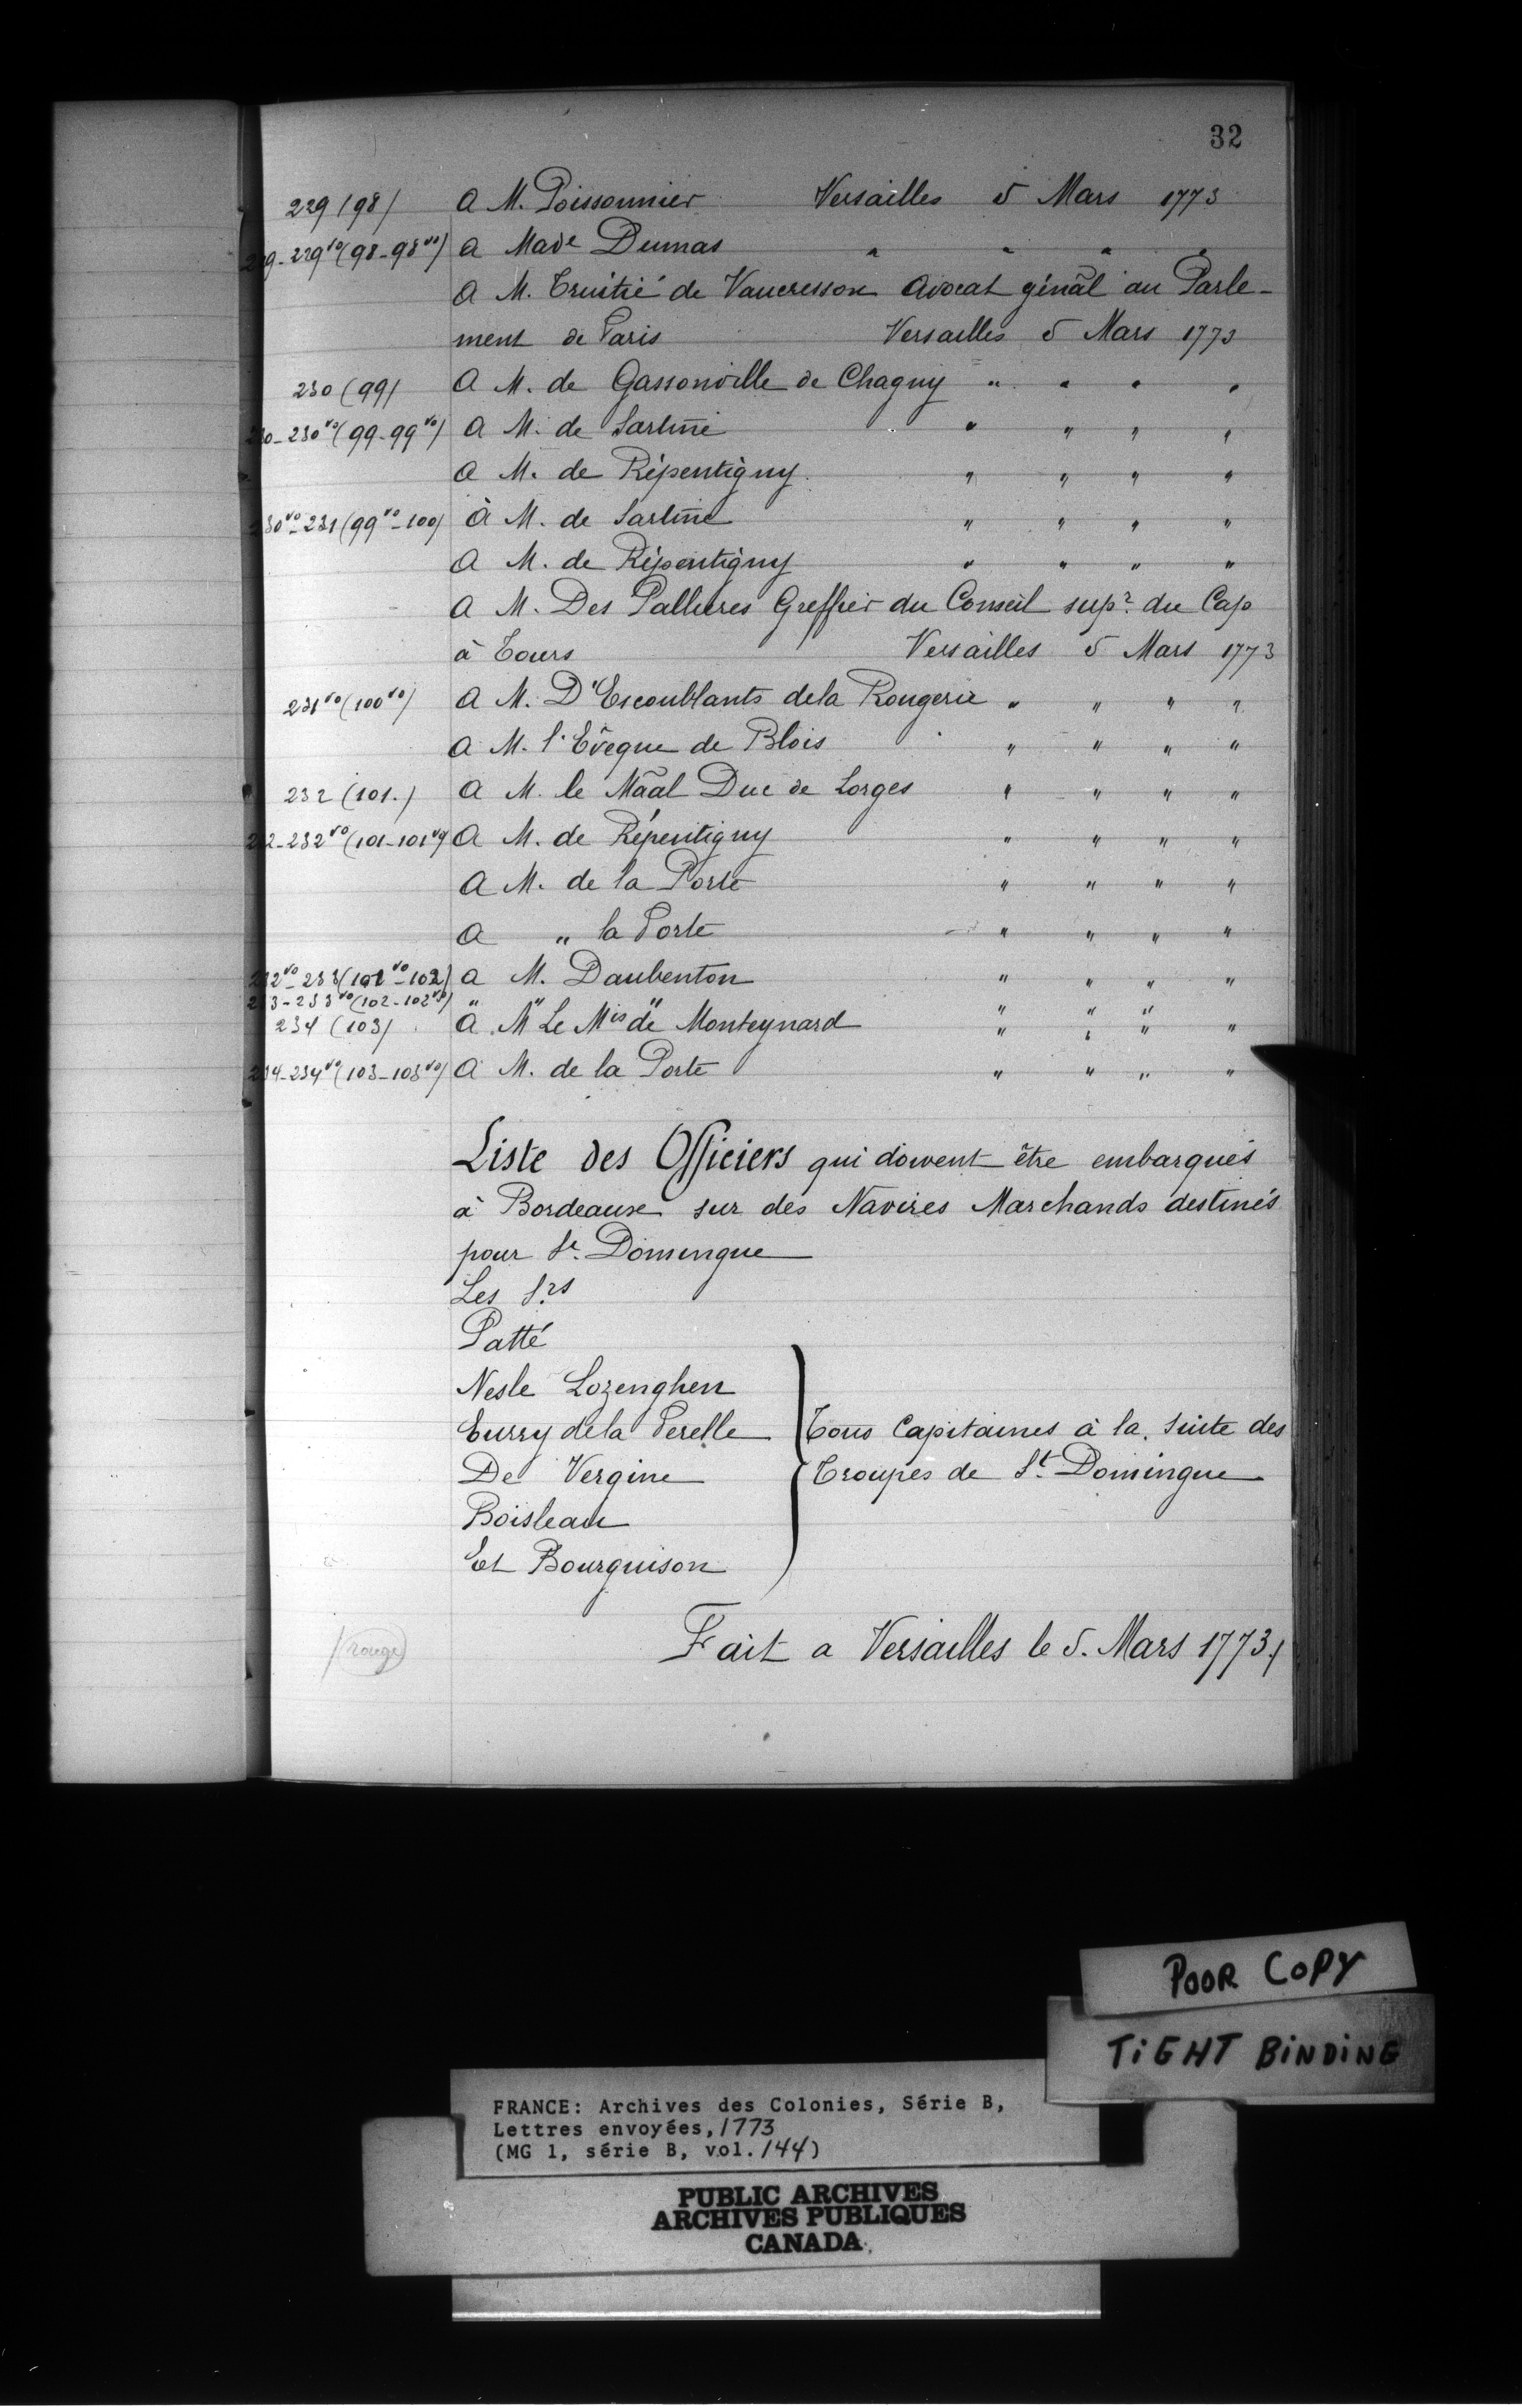 32
229 (98) A M. Poissonnier Versailles 5 Mars 1773
229-229vo (98-98vo) A Made Dumas " " " "
A M. Truitié de Vaucresson Avocat génãl au Parle-
ment de Paris Versailles 5 Mars 1773
230 (99) A M. de Gassonville de Chagny " " " "
230-230vo (99-99vo) A M. de Sartine " " " "
A M. de Répentigny " " " "
230vo-231 (99vo-100) à M. de Sartine " " " "
A M. de Répentigny " " " "
A M. Des Pallieres Greffier du Conseil supr. du Cap
à Tours Versailles 5 Mars 1773
231vo (100vo) A M. D'Escoublants de la Rougerie " " " "
A M. l'Evêque de Blois " " " "
232 (101.) A M. le Mãal Duc de Lorges " " " "
232-232vo (101-101vo) A M. de Répentigny " " " "
A M. de la Porte " " " "
A " la Porte " " " "
232vo-233 (101vo-102) a M. Daubenton " " " "
233-233vo (102-102vo) " " " " " "
234 (103) A M Le Mis de Monteynard " " " "
234-234vo (103-103vo) A M. de la Porte " " " "
Liste des Officiers qui doivent être embarqués
à Bordeaux sur des Navires Marchands destinés
pour St. Domingue
Les Srs
Patté
Nesle Lozenghen
Eurry de la Perelle Tous Capitaines à la Suite des
De Vergine Troupes de St. Domingue
Boisleau
Et Bourguison
Fait a Versailles le 5. Mars 1773./
rouge
POOR COPY
TIGHT BINDING
FRANCE: Archives des Colonies, Série B,
Lettres envoyées, 1773
(MG 1, série B, vol. 144)
PUBLIC ARCHIVES
ARCHIVES PUBLIQUES
CANADA